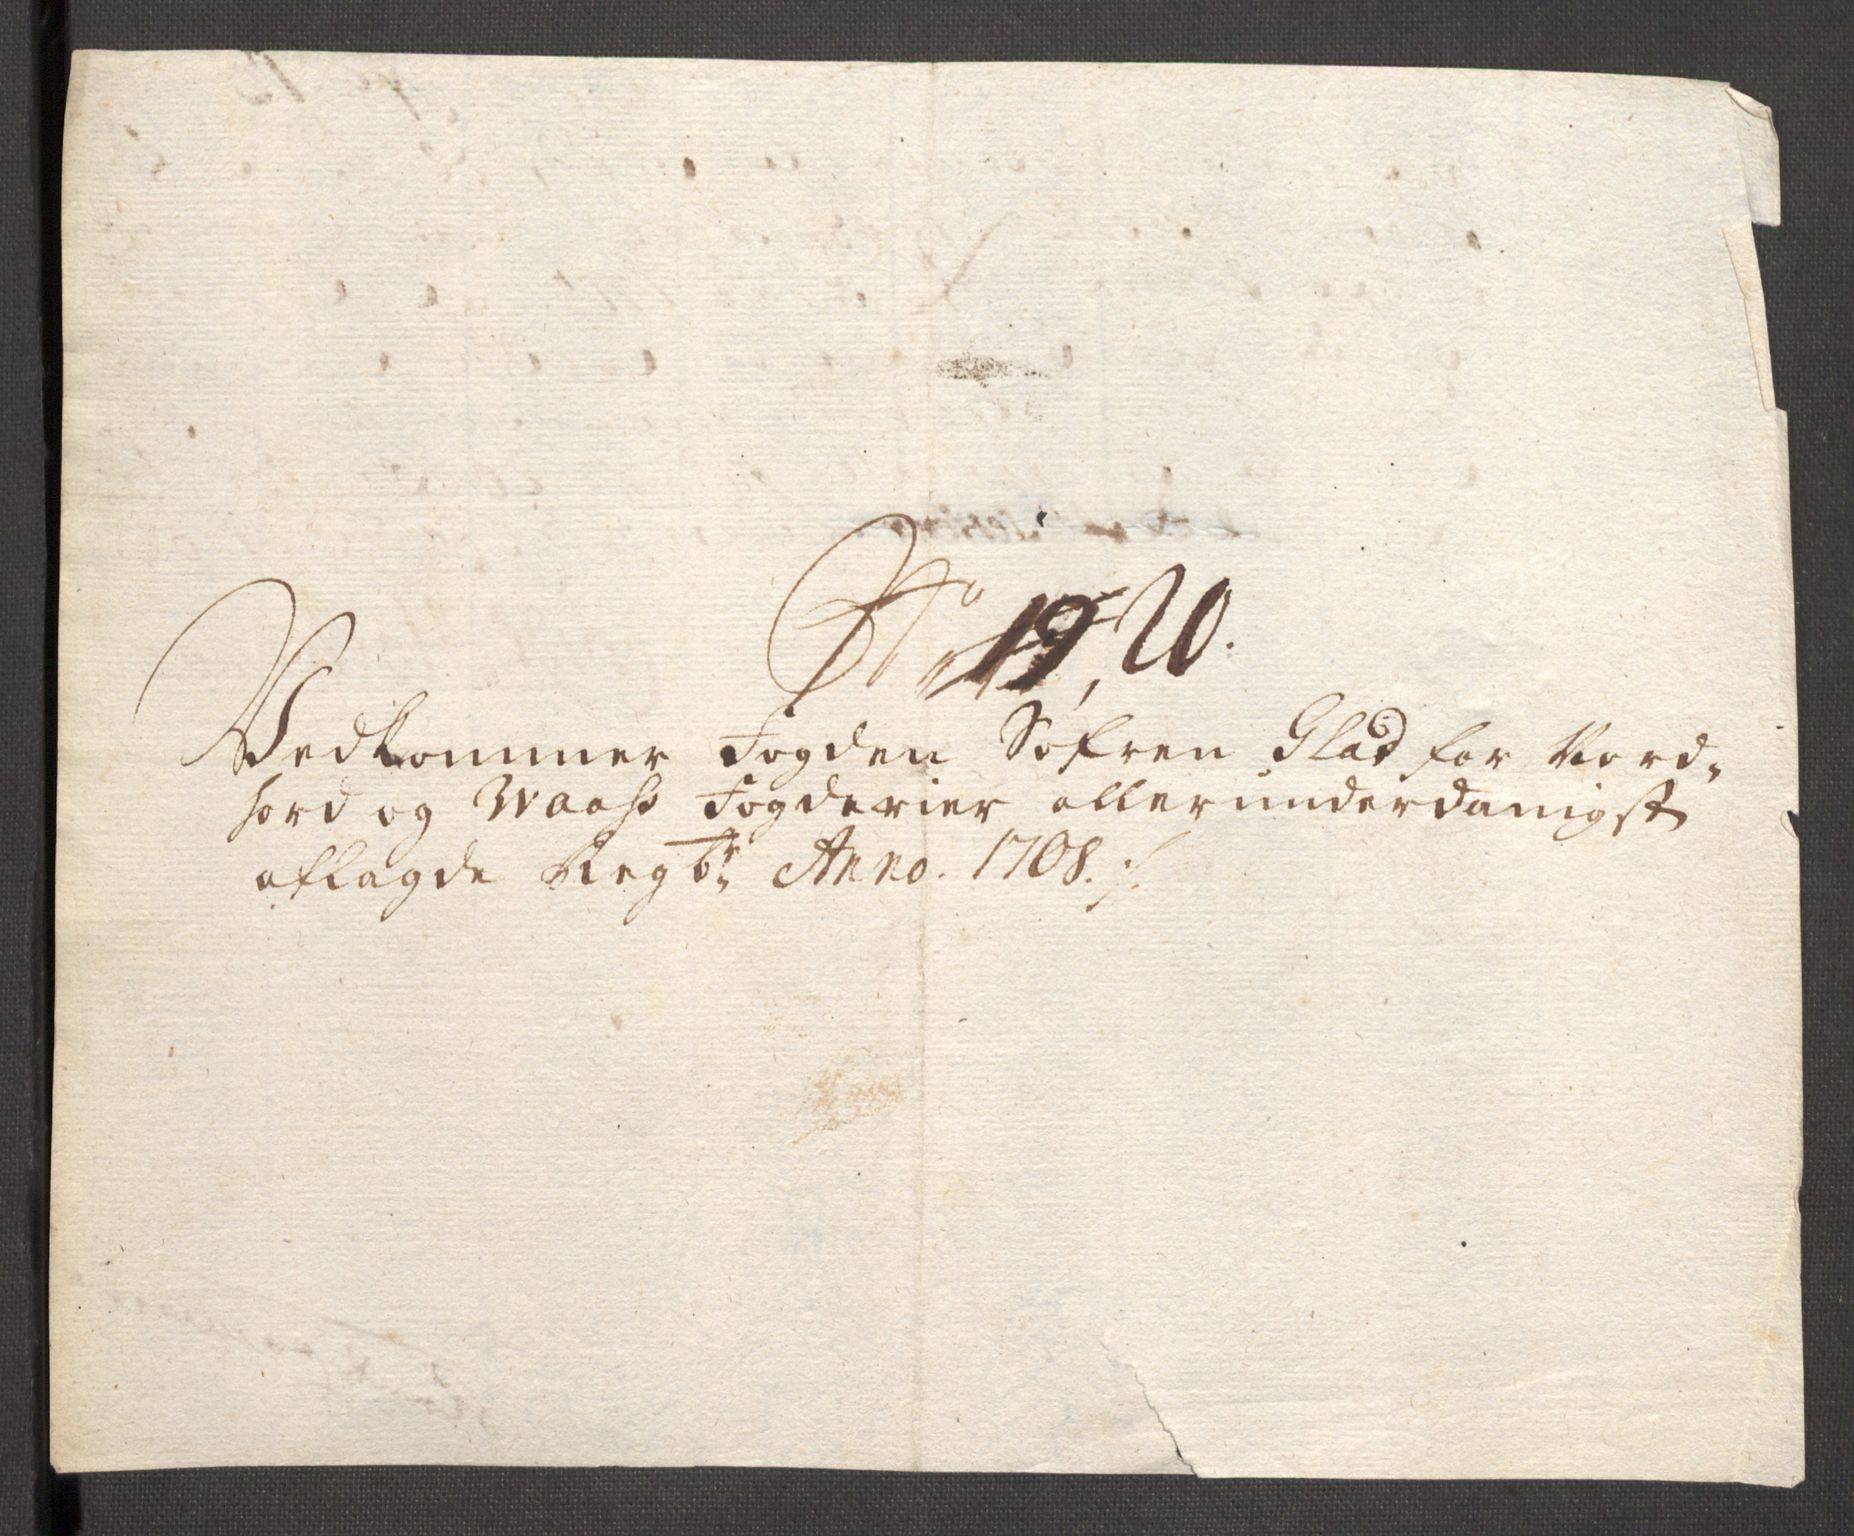 No 19, 20.
Vedkommer Fogden Söfren Glad for Nord-
hord og Waass Fogderier allerunderdanigst
aflagde Regbr Anno. 1708. /.